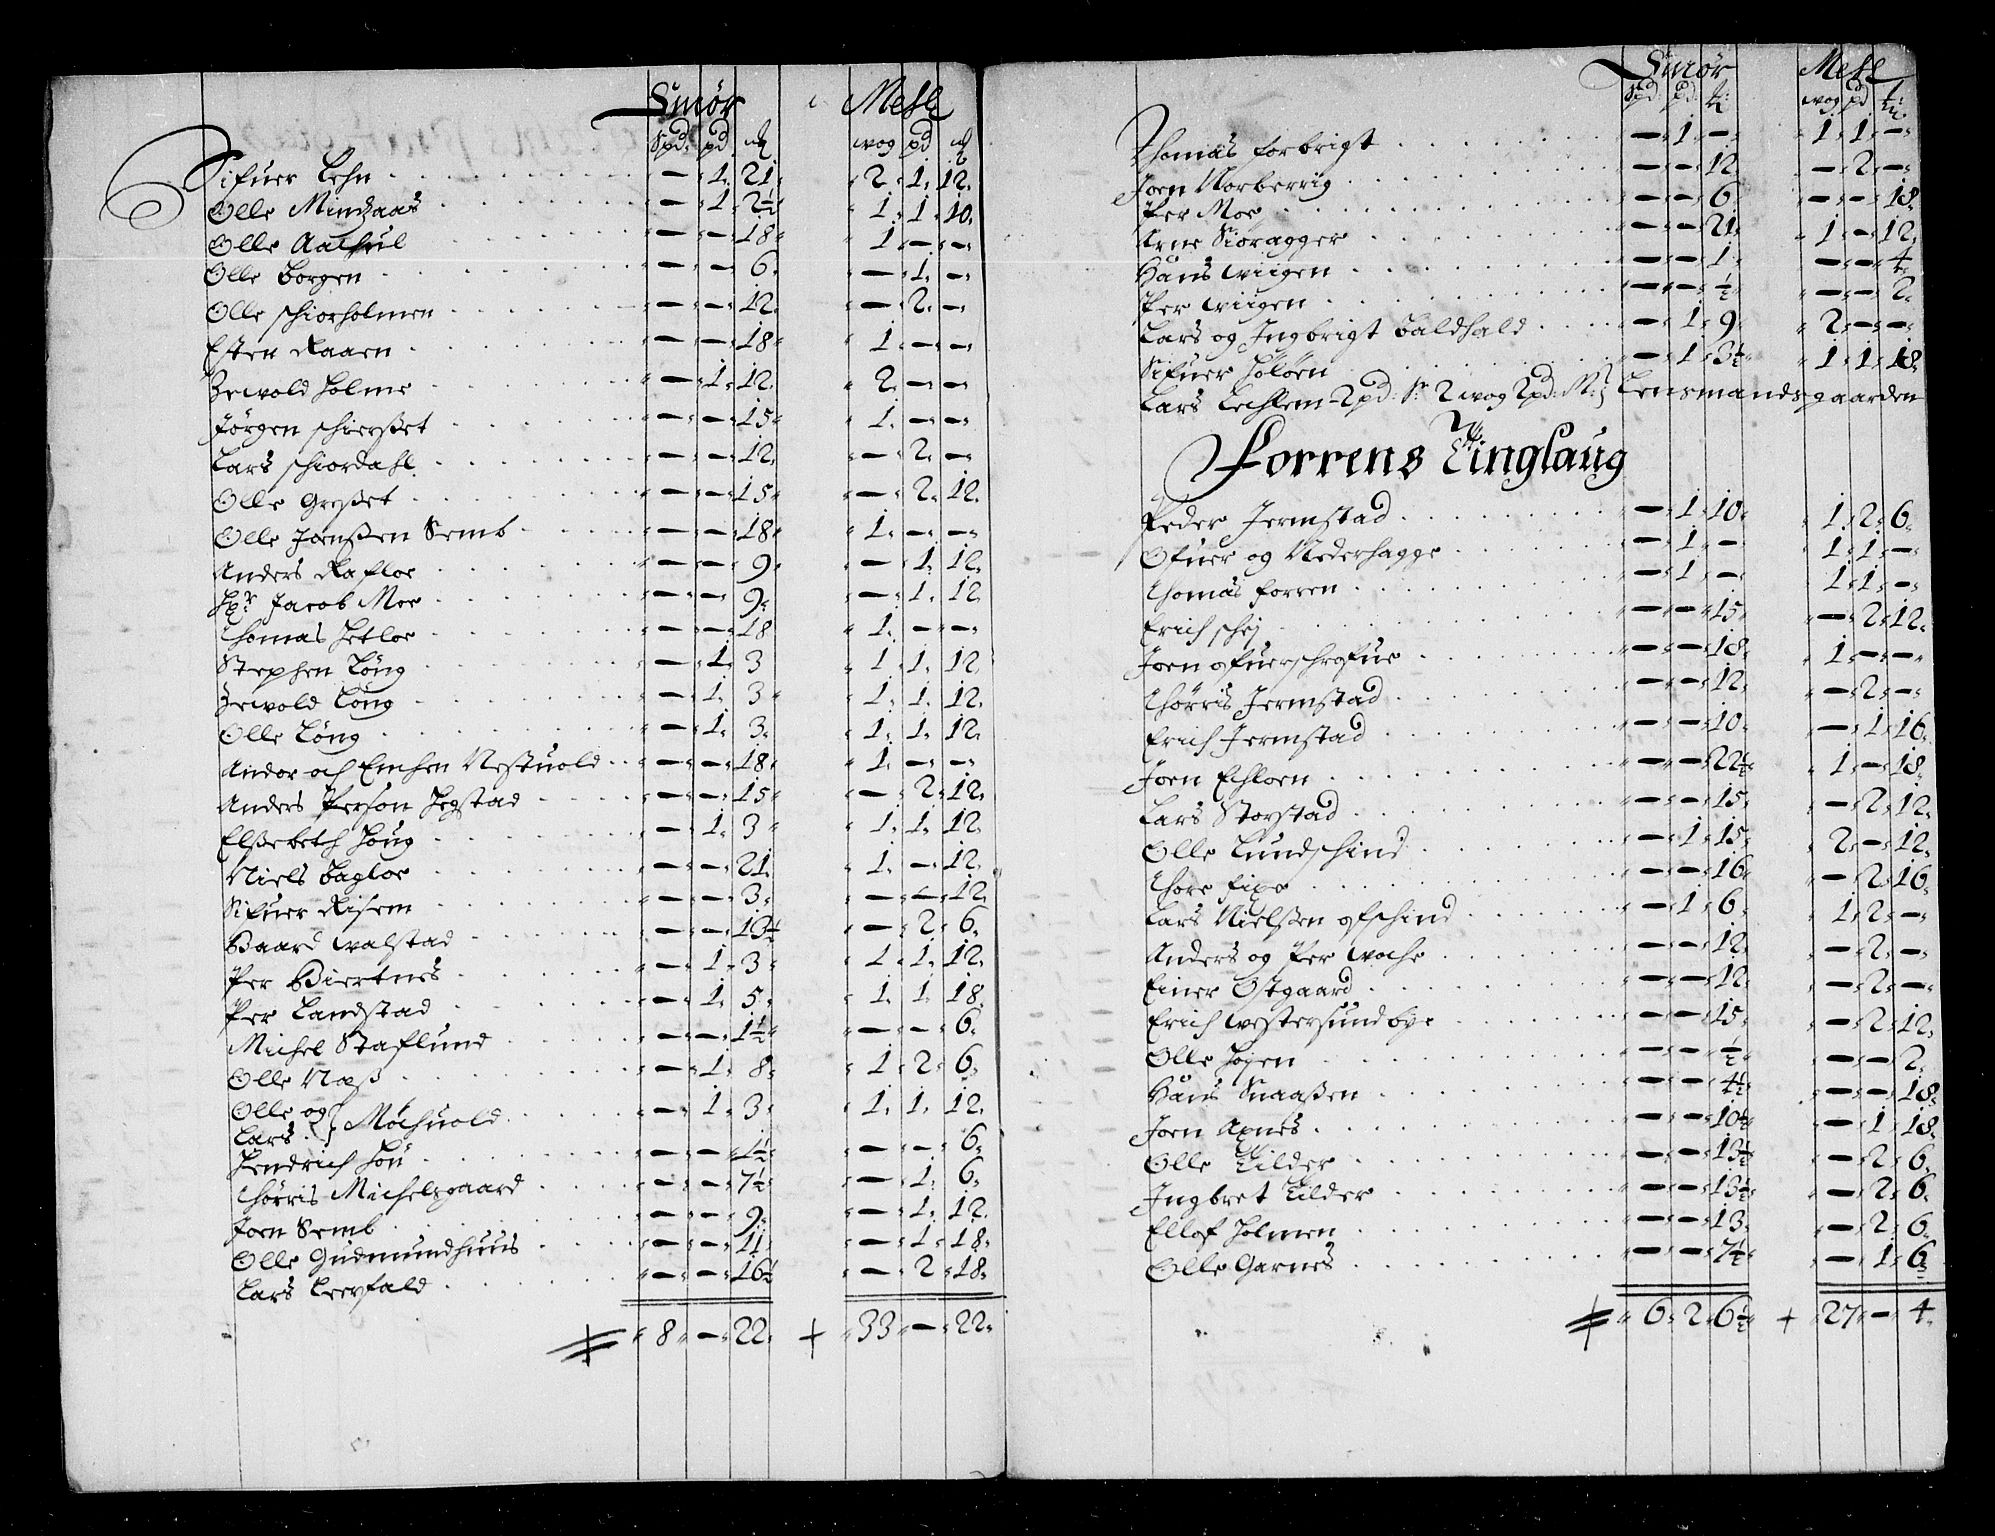 Smør Mehl
Spd: pd ℔ wog pd ℔
Sifuer Lehn — 1 21 2 1 12
Olle Mindsaas — 1 2½ 1 1 10
Olle Aachul — — 18 1 — —
Olle Borgen — — 6 — 1 —
Olle Schiorholmen — — 12 — 2 —
Esten Raaen — — 18 1 — —
Zewold Holme — 1 12 2 — —
Jørgen Schierßet — — 15 1 — —
Lars Schiordahl — — 12 — 2 —
Olle Greßet — — 15 — 2 12
Olle Joenßen Semb — — 18 1 — —
Anders Rafloe — — 9 — 1 12
Hr Jacob Moe — — 9 — 1 12
Thomas Hetloe — — 18 1 — —
Stephen Long — 1 3 1 1 12
Zewold Long — 1 3 1 1 12
Olle Long — 1 3 1 1 12
Andor och Emhen Nestuold — — 18 1 — —
Anders Person Hegstad — — 15 — 2 12
Elßebeth Houg — 1 3 1 1 12
Niels Bagloe — — 21 1 — 12
Sifuer Risem — — 3 — — 12
Baard Walstad — — 13½ — 2 6
Per Biertnes — 1 3 1 1 12
Per Landstad — 1 5 1 1 18
Michel Staflund — — 1½ — — 6
Olle Næß — 1 8 1 2 6
Olle og
Lars Mochuold — 1 3 1 1 12
Hendrich Hou — — 1½ — — 6
Thørris Michelsgaard — — 7½ — 1 6
Joen Semb — — 9 — 1 12
Olle Gudmundhuus — — 11 — 1 18
Lars Leerfald — — 16½ — 2 18
8 — 22 + 33 — 22
Smør Mehl
Spd: pd: ℔: wog pd ℔:
Thomas Forbrigt — 1 — 1 1 —
Joen Norberrig — — 12 — 2 —
Per Moe — — 6 — — 18
Arne Sioragger — — 21 1 — 12
Hans Wiigen — — 1 — — 4
Per Wiigen — — ½ — — 2
Lars og Ingbrigt Baldhald — 1 9 2 — —
Sifuer Holoen — 1 3½ 1 1 18
Lars Lechlem 2 pd: Sr 2 wog 2 pd: M: Lensmandsgaarden
Forrens Tinglaug
Peder Jermstad — 1 10 1 2 6
Ofuer og Nederhagge — 1 — 1 1 —
Thomas Forren — 1 — 1 1 —
Erich Schej — — 15 — 2 12
Joen Ofuerschrofue — — 18 1 — —
Thørris Jermstad — — 12 — 2 —
Erich Jermstad — — 10 — 1 16
Joen Echloen — — 22½ 1 — 18
Lars Storstad — — 15 — 2 12
Olle Lundschind — 1 15 2 — 12
Thore Fixe — — 16 — 2 16
Lars Nielßen Ofschind — 1 6 1 2 —
Anders og Per Woche — — 12 — 2 —
Einer Ostgaard — — 12 — 2 —
Erich Westersundbye — — 15 — 2 12
Olle Hogen — — ½ — — 2
Hans Snaaßen — — 4½ — — 18
Joen Axnes — — 10½ — 1 18
Olle Tilder — — 13½ — 2 6
Ingbret Tilder — — 13½ — 2 6
Ellof Holmen — — 13 — 2 6
Olle Garnes — — 7½ — 1 6
6 2 6½ + 27 — 4